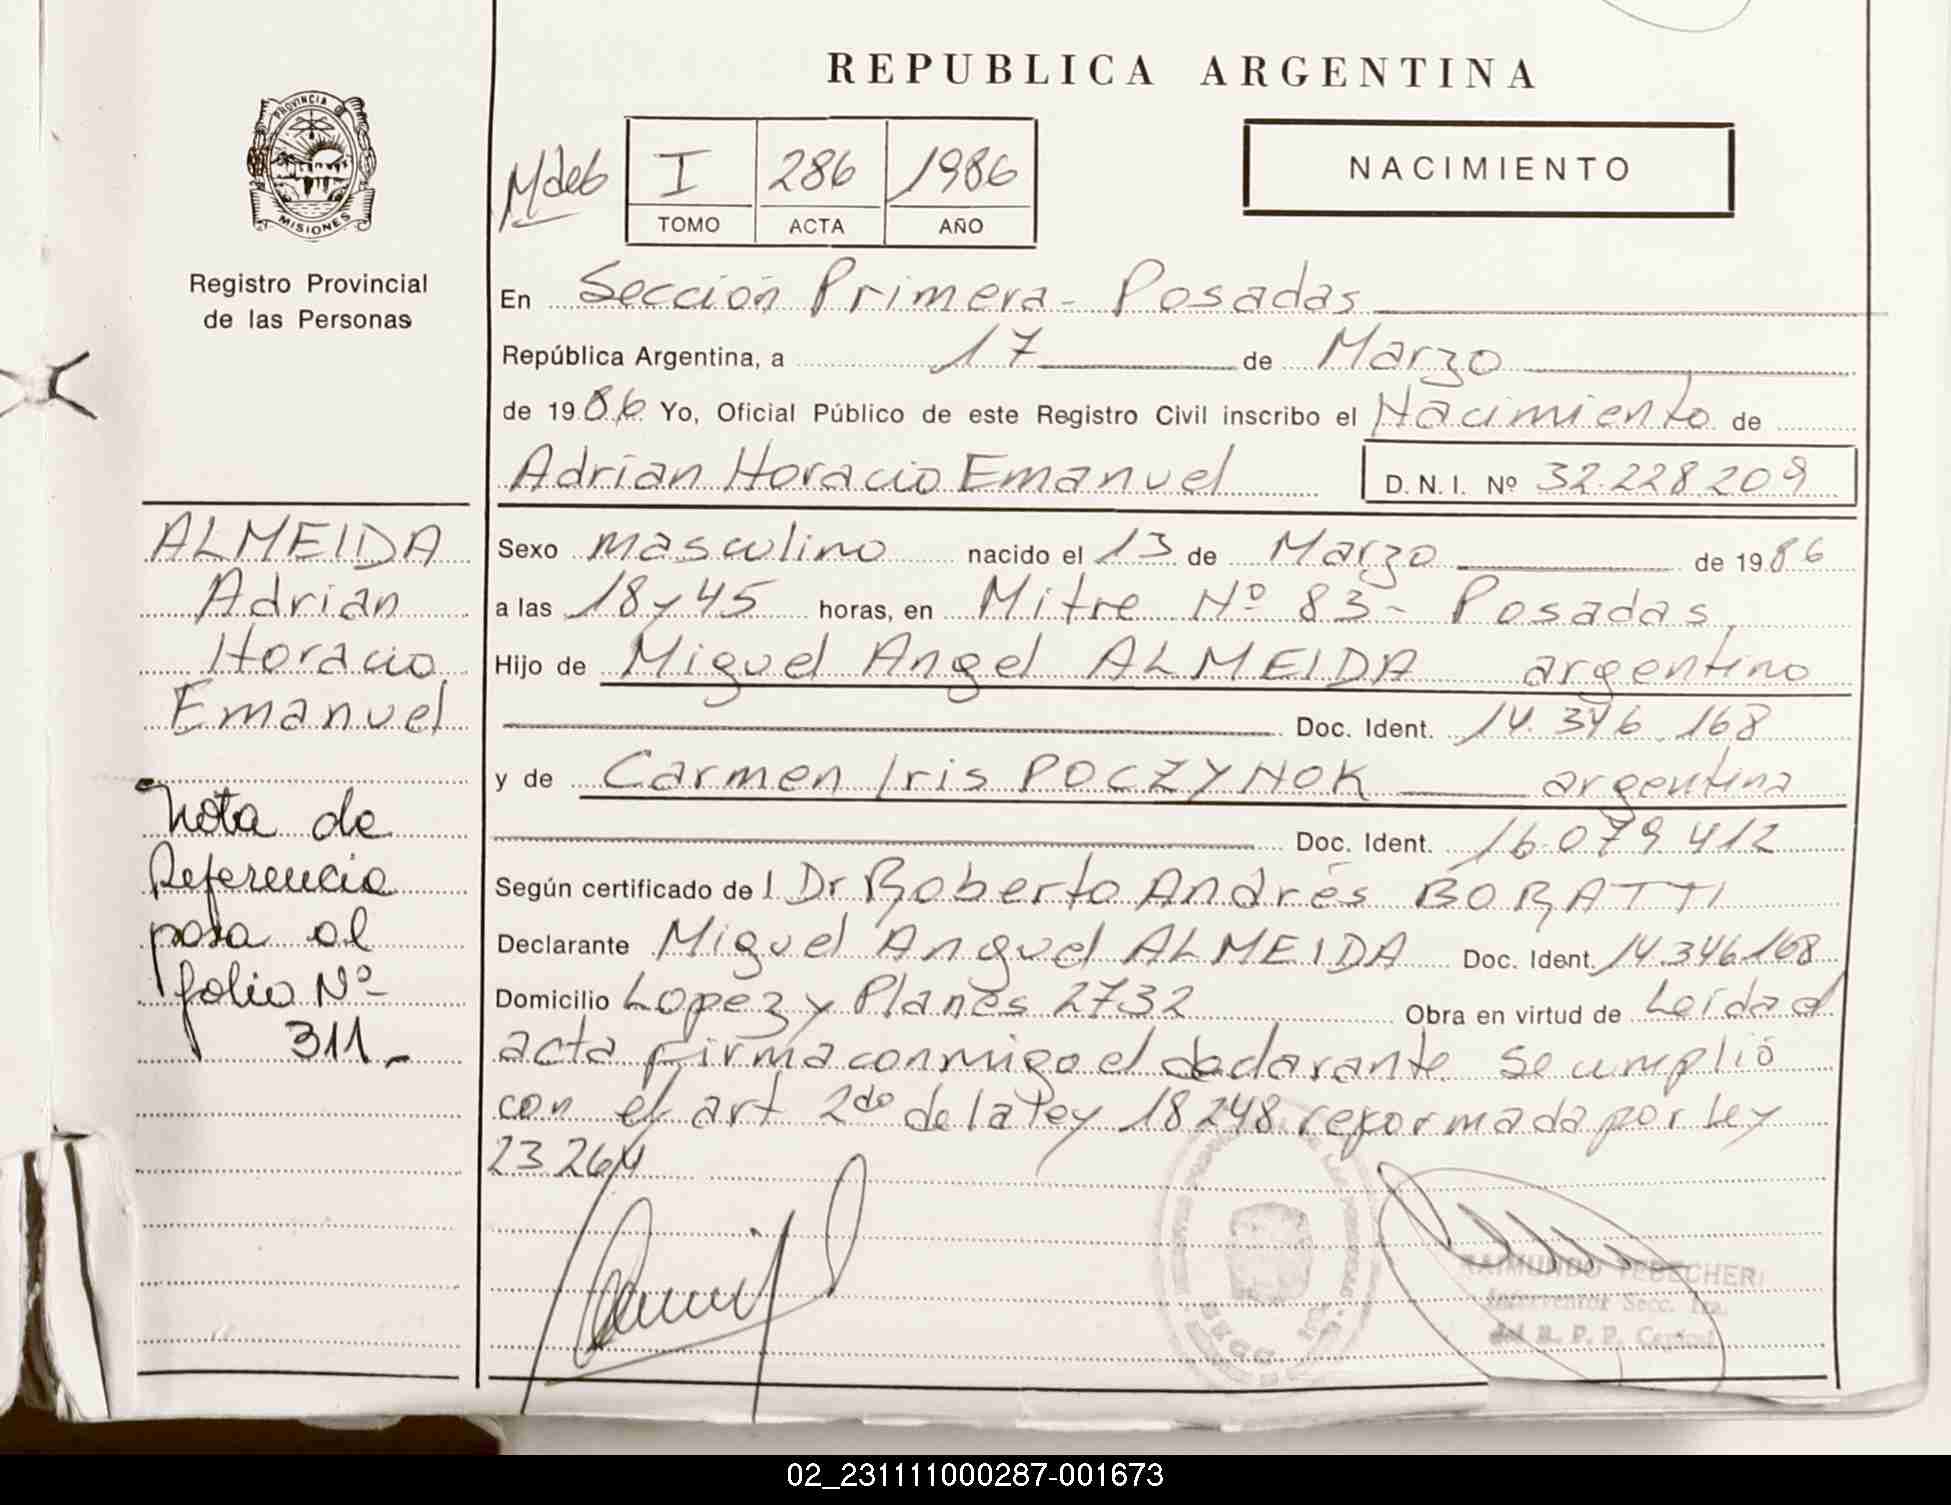 REPUBLICA ARGENTINA
PROVINCIA DE
MISIONES
Registro Provincial
de las Personas
Mdeb
I 286 1986
TOMO ACTA AÑO
NACIMIENTO
En Sección Primera - Posadas
República Argentina, a 17 de Marzo
de 1986 Yo, Oficial Público de este Registro Civil inscribo el Nacimiento de
Adrian Horacio Emanuel D.N.I. Nº 32.228.209
Sexo masculino nacido el 13 de Marzo de 1986
a las 18 y 45 horas, en Mitre Nº 83 - Posadas
Hijo de Miguel Angel ALMEIDA argentino
Doc. Ident. 14.346.168
y de Carmen Iris POCZYNOK argentina
Doc. Ident. 16.079.412
Según certificado del Dr Roberto Andrés BORATTI
Declarante Miguel Anguel ALMEIDA Doc. Ident. 14.346.168
Domicilio Lopez y Planes 2732 Obra en virtud de Leída el
acta firma conmigo el declarante se cumplió
con el art 2do de la Ley 18248 reformada por Ley
23264
ALMEIDA
Adrian
Horacio
Emanuel
Nota de
Referencia
pasa al
folio Nº
311.-
RAIMUNDO
Interventor Secc. 1ra.
del R. P. P. Capital
02_231111000287-001673